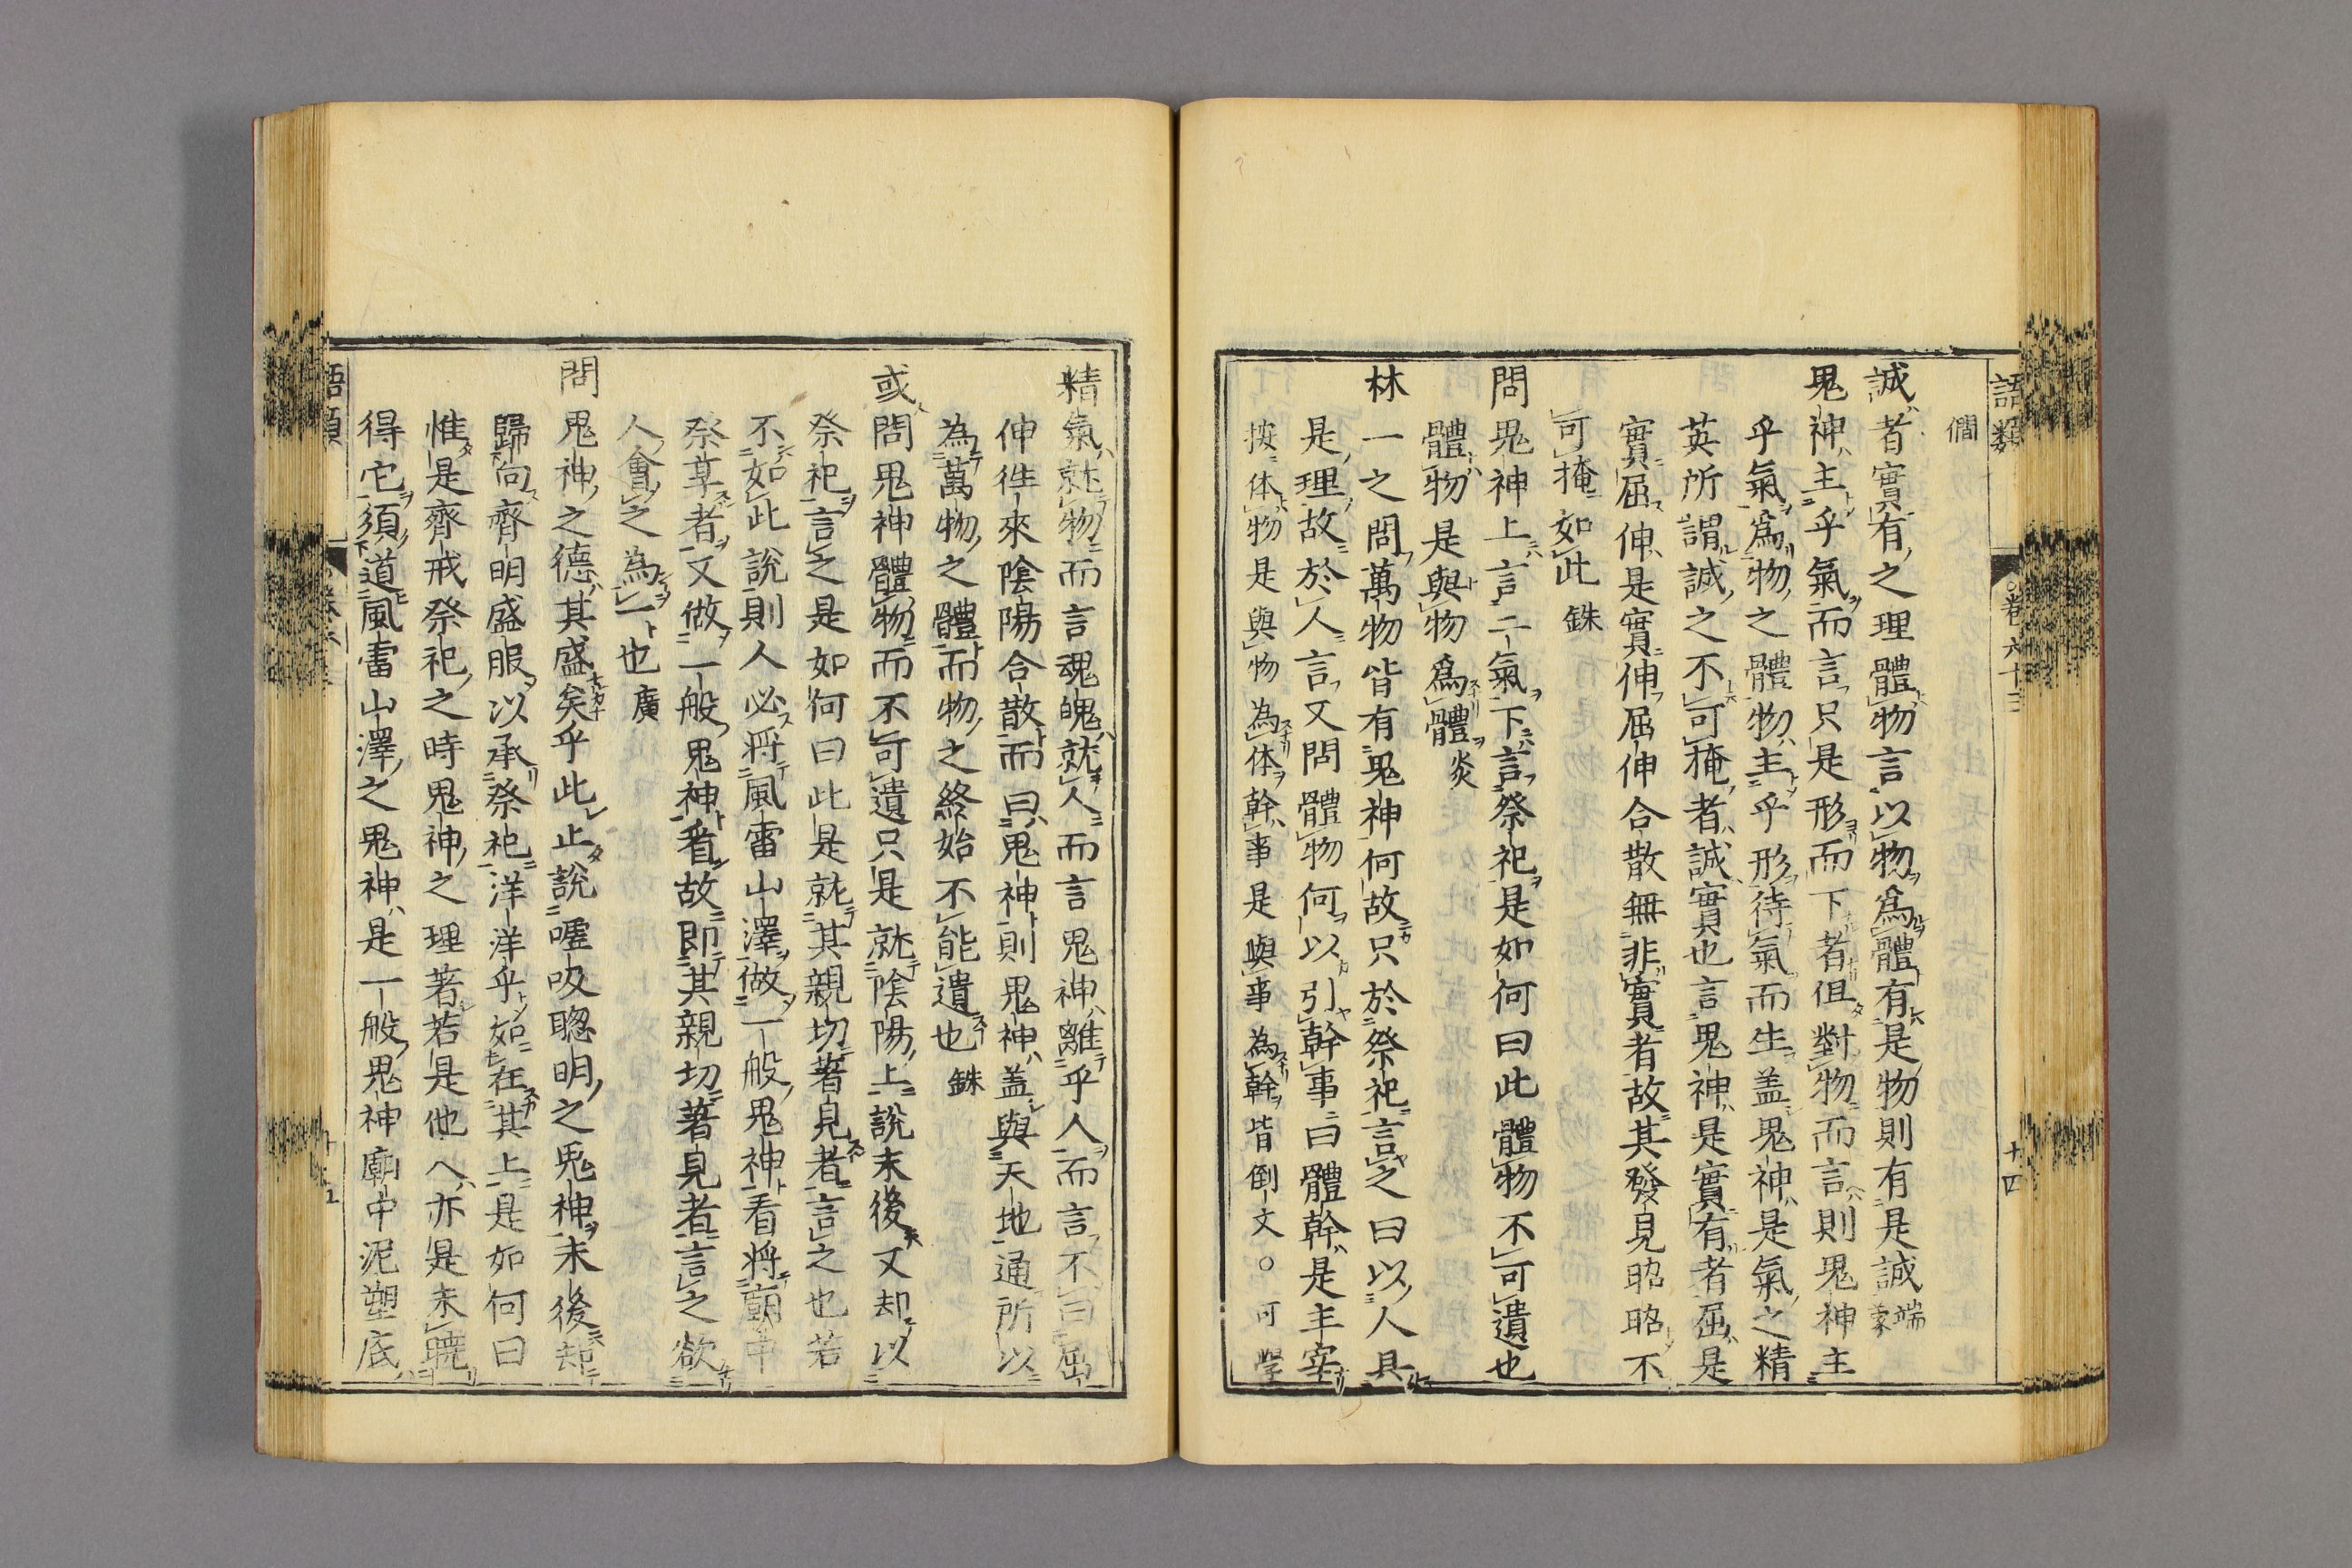 語類
卷六十三
十四
僩
誠者實有之理體物言以物爲體有是物則有是誠端蒙
鬼神主乎氣而言只是形而下者但對物而言則鬼神主
乎氣爲物之體物主乎形待氣而生盖鬼神是氣之精
英所謂誠之不可掩者誠實也言鬼神是實有者屈是
實屈伸是實伸屈伸合散無非實者故其發見昭昭不
可掩如此銖
問鬼神上言二氣下言祭祀是如何曰此體物不可遺也
體物是與物爲體炎
林一之問萬物皆有鬼神何故只於祭祀言之曰以人具
是理故於人言又問體物何以引幹事曰體幹是主宰
按体物是與物為体幹事是與事為幹皆倒文○可學
精氣就物而言魂魄就人而言鬼神離乎人而言不曰屈
伸徃來陰陽合散而曰鬼神則鬼神盖與天地通所以
為萬物之體而物之終始不能遺也銖
或問鬼神體物而不可遺只是就陰陽上說末後又却以
祭祀言之是如何曰此是就其親切著見者言之也若
不如此說則人必将風雷山澤做一般鬼神看将廟中
祭享者又做一般鬼神看故即其親切著見者言之欲
人會之為一也廣
問鬼神之德其盛矣乎此止說嘘吸聦明之鬼神末後却
歸向齊明盛服以承祭祀洋洋乎如在其上是如何曰
惟是齊戒祭祀之時鬼神之理著若是他人亦是未曉
得它須道風雷山澤之鬼神是一般鬼神廟中泥塑底
語類